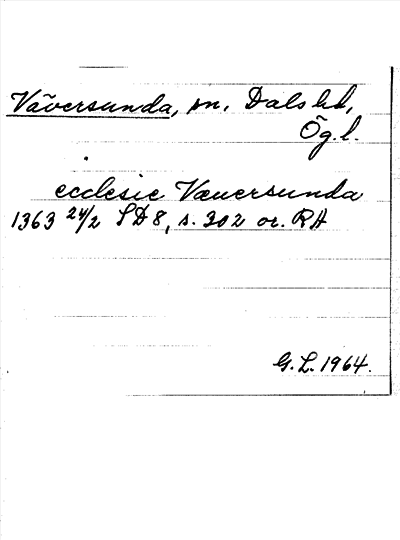 Väversunda, sn, Dals hd,
Ög.l.
ecclesie Væuersunda
1363 24/2 SD 8, s. 302 or. RA
G. L. 1964.